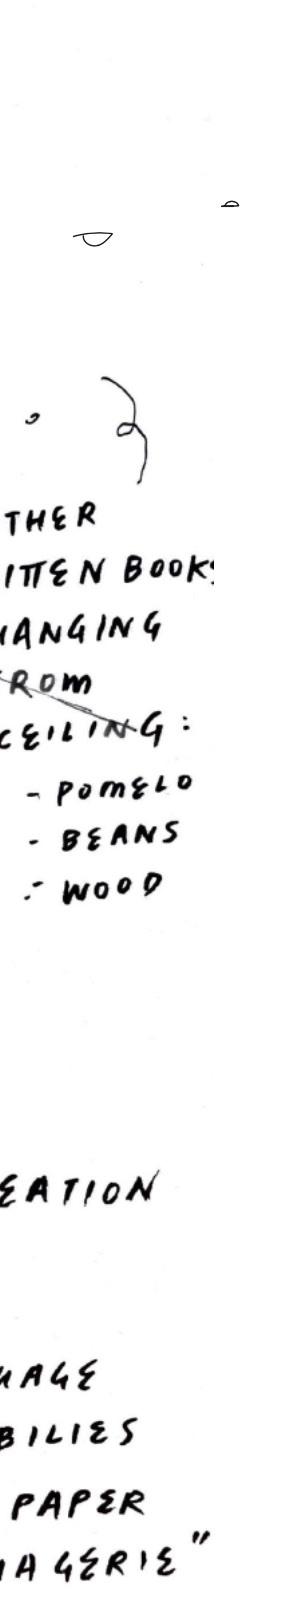 THER
ITTEN BOOKS
HANGING
FROM
CEILING:
- POMELO
- BEANS
- WOOD
EATION
UAGE
BILIES
PAPER
AGERIE"